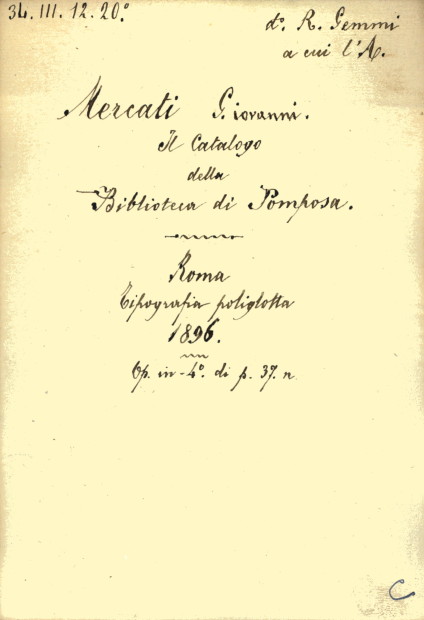 34. III. 12. 20.°
d.° R. Gemmi
a cui l'A.
Mercati Giovanni.
Il Catalogo
della
Biblioteca di Pomposa.
Roma
Tipografia poliglotta
1896.
Op. in-4.° di p. 37. n
C